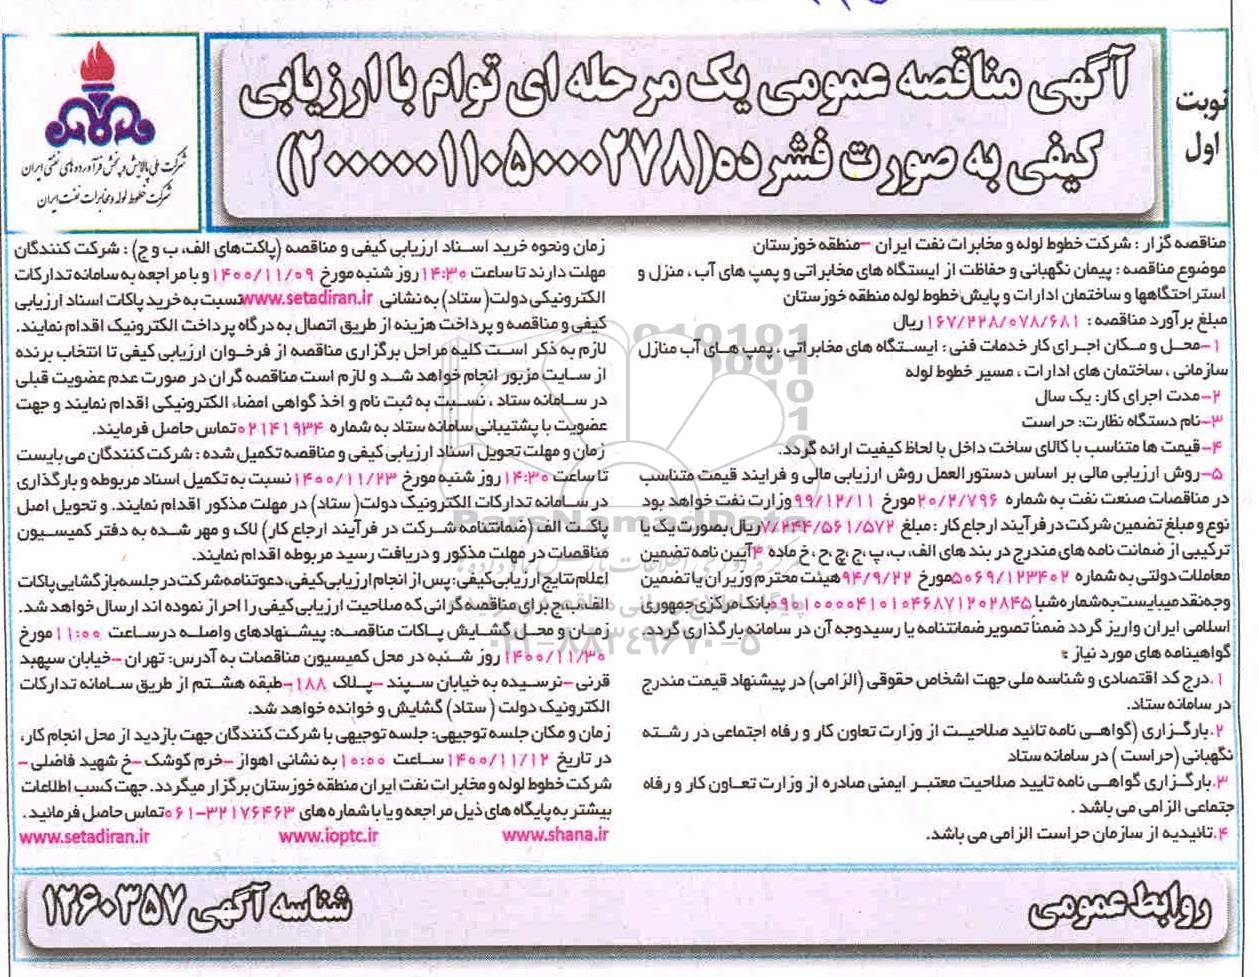 نوبت
اول
آگهی مناقصه عمومی یک مرحله ای توام با ارزیابی
کیفی به صورت فشرده(۲۰۰۰۰۰۱۱۰۵۰۰۰۲۷۸)
شرکت ملی پالایش و پخش فرآورده های نفتی ایران
شرکت خطوط لوله و مخابرات نفت ایران
مناقصه گزار : شرکت خطوط لوله و مخابرات نفت ایران –منطقه خوزستان
موضوع مناقصه : پیمان نگهبانی و حفاظت از ایستگاه های مخابراتی و پمپ های آب ، منزل و
استراحتگاهها و ساختمان ادارات و پایش خطوط لوله منطقه خوزستان
مبلغ برآورد مناقصه : ۱۶۷/۲۲۸/۰۷۸/۶۸۱ ریال
۱–محل و مکان اجرای کار خدمات فنی : ایستگاه های مخابراتی ، پمپ های آب منازل
سازمانی ، ساختمان های ادارات ، مسیر خطوط لوله
۲–مدت اجرای کار: یک سال
۳–نام دستگاه نظارت: حراست
۴–قیمت ها متناسب با کالای ساخت داخل با لحاظ کیفیت ارائه گردد.
۵–روش ارزیابی مالی بر اساس دستورالعمل روش ارزیابی مالی و فرایند قیمت متناسب
در مناقصات صنعت نفت به شماره ۲۰/۲/۷۹۶مورخ ۹۹/۱۲/۱۱وزارت نفت خواهد بود
نوع و مبلغ تضمین شرکت در فرآیند ارجاع کار : مبلغ ۷/۲۴۴/۵۶۱/۵۷۲ریال بصورت یک یا
ترکیبی از ضمانت نامه های مندرج در بند های الف، ب، پ، ج، چ، ح ، خ ماده ۴آیین نامه تضمین
معاملات دولتی به شماره ۵۰۶۹/۱۲۳۴۰۲مورخ ۹۴/۹/۲۲هیئت محترم وزیران یا تضمین
وجه نقد میبایست به شماره شبا ۰۹۰۱۰۰۰۰۴۱۰۱۰۴۶۸۷۱۲۰۲۸۴۵بانک مرکزی جمهوری
اسلامی ایران واریز گردد ضمناً تصویر ضمانتنامه یا رسید وجه آن در سامانه بارگذاری گردد.
گواهینامه های مورد نیاز :
۱.درج کد اقتصادی و شناسه ملی جهت اشخاص حقوقی (الزامی) در پیشنهاد قیمت مندرج
در سامانه ستاد.
۲.بارگزاری (گواهی نامه تائید صلاحیت از وزارت تعاون کار و رفاه اجتماعی در رشته
نگهبانی (حراست ) در سامانه ستاد
۳.بارگزاری گواهی نامه تایید صلاحیت معتبر ایمنی صادره از وزارت تعاون کار و رفاه
جتماعی الزامی می باشد .
۴.تائیدیه از سازمان حراست الزامی می باشد.
زمان ونحوه خرید اسناد ارزیابی کیفی و مناقصه (پاکت‌های الف، ب و ج) : شرکت کنندگان
مهلت دارند تا ساعت ۱۴:۳۰روز شنبه مورخ ۱۴۰۰/۱۱/۰۹ و با مراجعه به سامانه تدارکات
الکترونیکی دولت( ستاد) به نشانی www.setadiran.irنسبت به خرید پاکات اسناد ارزیابی
کیفی و مناقصه و پرداخت هزینه از طریق اتصال به درگاه پرداخت الکترونیک اقدام نمایند.
لازم به ذکر است کلیه مراحل برگزاری مناقصه از فرخوان ارزیابی کیفی تا انتخاب برنده
از سایت مزبور انجام خواهد شد و لازم است مناقصه گران در صورت عدم عضویت قبلی
در سامانه ستاد ، نسبت به ثبت نام و اخذ گواهی امضاء الکترونیکی اقدام نمایند و جهت
عضویت با پشتیبانی سامانه ستاد به شماره ۰۲۱۴۱۹۳۴تماس حاصل فرمایند.
زمان و مهلت تحویل اسناد ارزیابی کیفی و مناقصه تکمیل شده : شرکت کنندگان می بایست
تا ساعت ۱۴:۳۰روز شنبه مورخ ۱۴۰۰/۱۱/۲۳نسبت به تکمیل اسناد مربوطه و بارگذاری
در سامانه تدارکات الکترونیک دولت( ستاد) در مهلت مذکور اقدام نمایند. و تحویل اصل
پاکت الف (ضمانتنامه شرکت در فرآیند ارجاع کار) لاک و مهر شده به دفتر کمیسیون
مناقصات در مهلت مذکور و دریافت رسید مربوطه اقدام نمایند.
اعلام نتایج ارزیابی کیفی: پس از انجام ارزیابی کیفی، دعوتنامه شرکت در جلسه بازگشایی پاکات
الف،ب،ج برای مناقصه گرانی که صلاحیت ارزیابی کیفی را احراز نموده اند ارسال خواهد شد.
زمان و محل گشایش پاکات مناقصه: پیشنهادهای واصله در ساعت ۱۱:۰۰مورخ
۱۴۰۰/۱۱/۳۰روز شنبه در محل کمیسیون مناقصات به آدرس: تهران –خیابان سپهبد
قرنی –نرسیده به خیابان سپند –پلاک ۱۸۸–طبقه هشتم از طریق سامانه تدارکات
الکترونیک دولت ( ستاد) گشایش و خوانده خواهد شد.
زمان و مکان جلسه توجیهی: جلسه توجیهی با شرکت کنندگان جهت بازدید از محل انجام کار،
در تاریخ ۱۴۰۰/۱۱/۱۲ ساعت ۱۰:۰۰ به نشانی اهواز –خرم کوشک –خ شهید فاضلی –
شرکت خطوط لوله و مخابرات نفت ایران منطقه خوزستان برگزار میگردد. جهت کسب اطلاعات
بیشتر به پایگاه های ذیل مراجعه و یا با شماره های ۳۲۱۷۶۴۶۳–۰۶۱تماس حاصل فرمائید .
www.shana.ir www.ioptc.ir www.setadiran.ir
روابط عمومی
شناسه آگهی ۱۲۶۰۳۵۷
ParsNamadData
۰۲۱-۸۸۳۴۹۶۷۰-۵